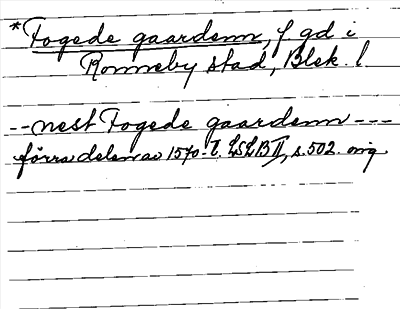 *Fogede gaardenn, f gd i
Ronneby stad, Blek. l.
--nest Fogede gaardenn---
förra delen av 1570-t. LSLB II, s. 502. orig.